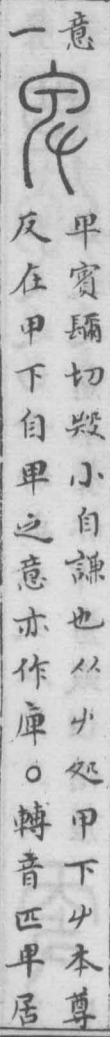 意
一
卑賓彌切毀小自謙也从𠂇处甲下𠂇本尊
反在甲下自卑之意亦作庳○轉音匹卑居